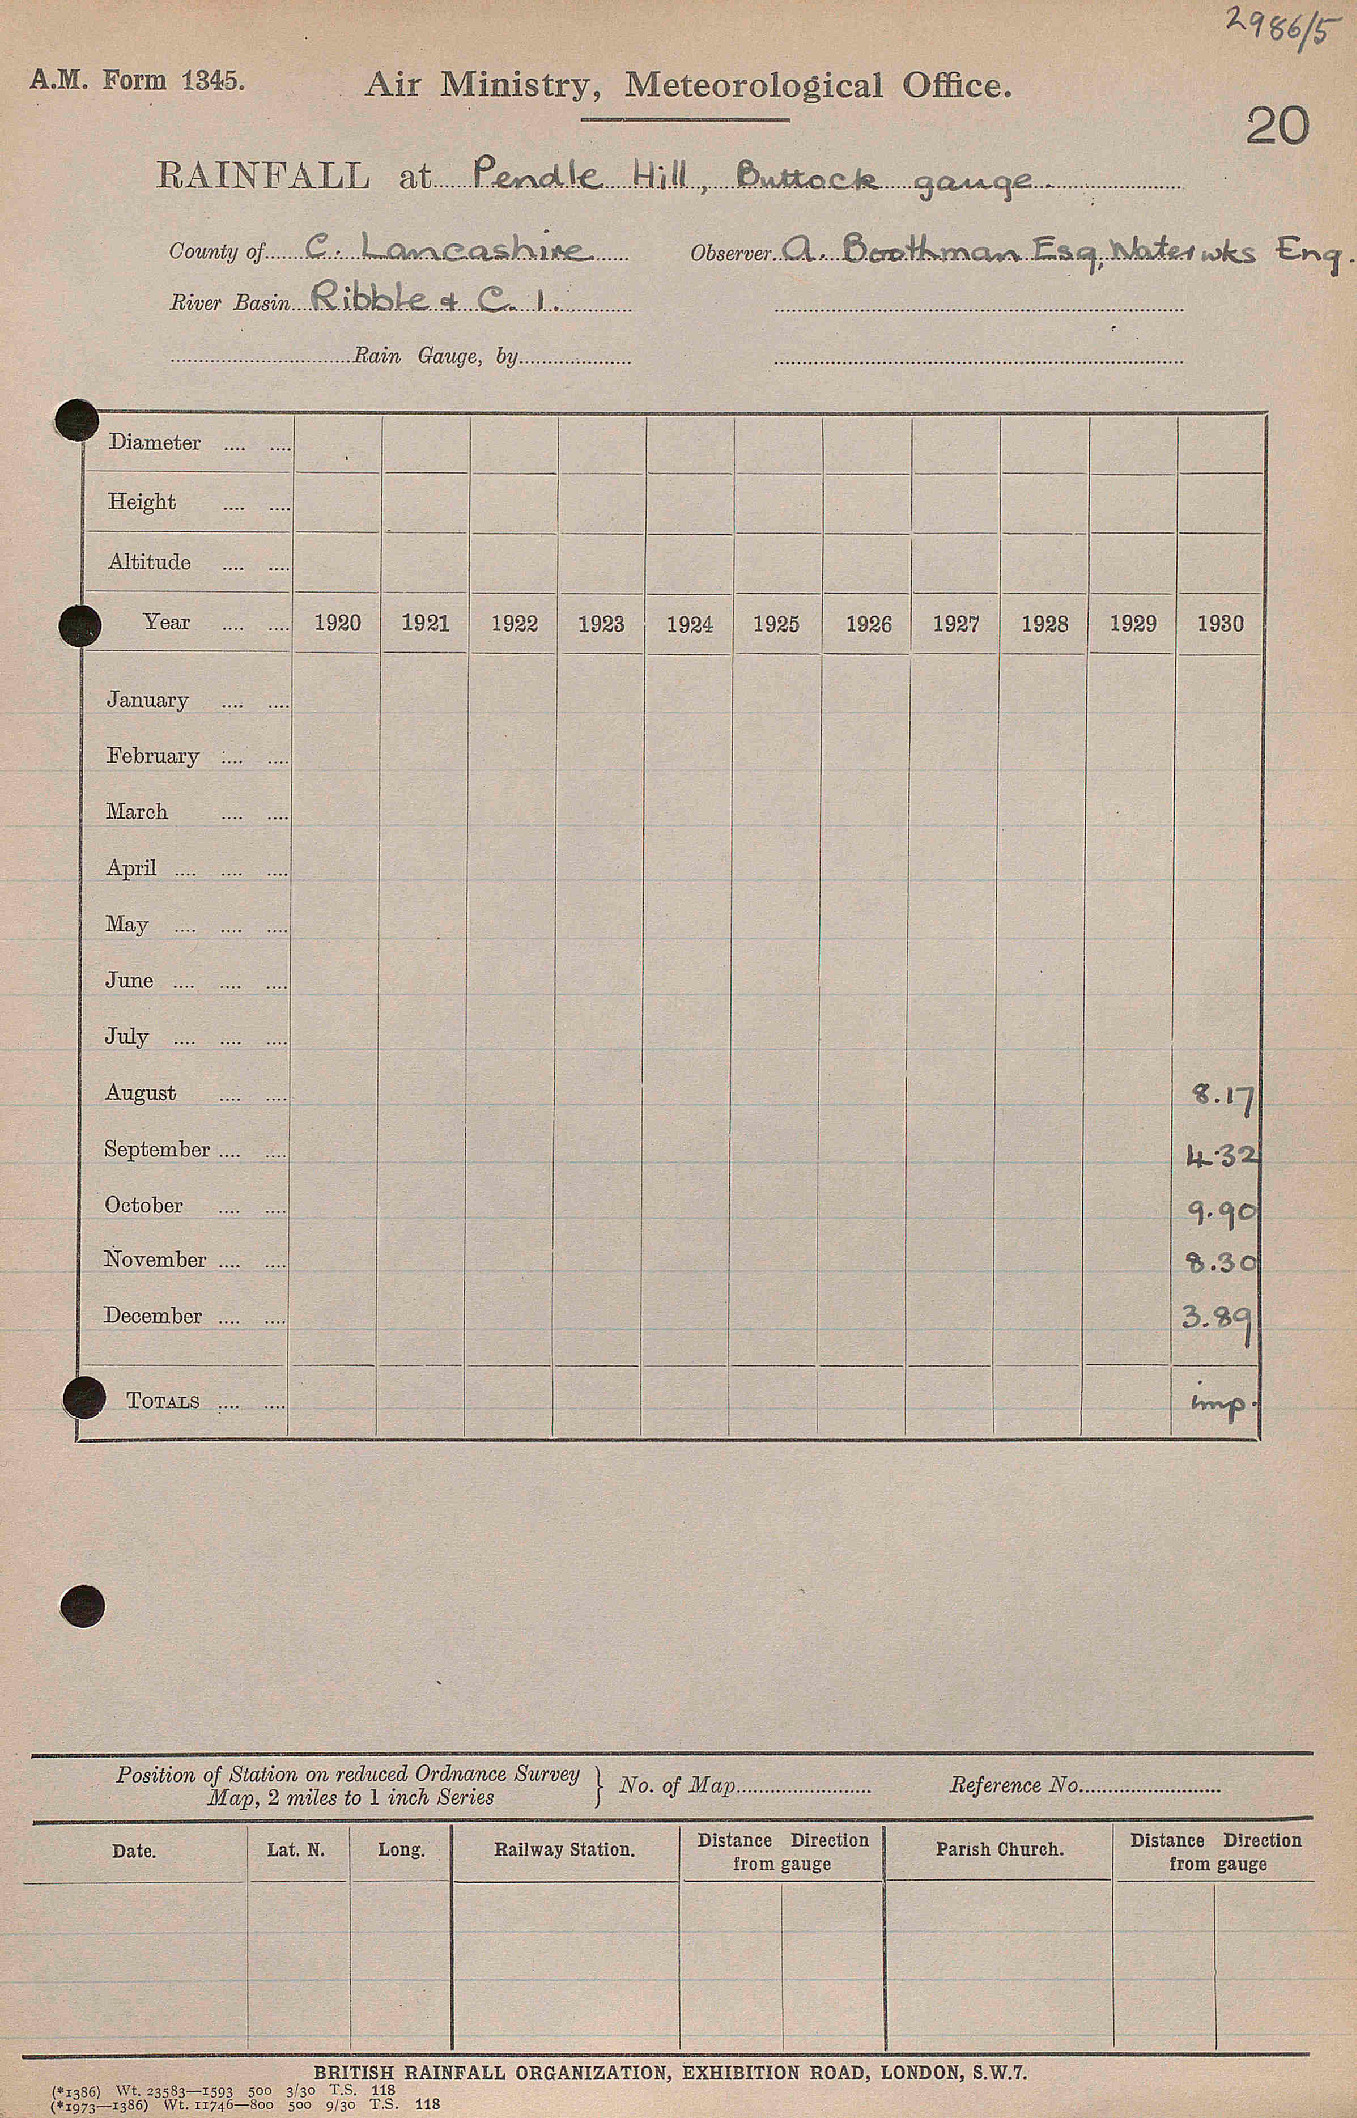 2986/5
A.M. Form 1345. Air Ministry, Meteorological Office.
20
RAINFALL at Pendle Hill, Buttock gauge
County of C. Lancashire Observer. A. Boothman Esq, Waterwks Eng.
River Basin Ribble & C. 1.
Rain Gauge, by
Diameter .... ....
Height .... ....
Altitude .... ....
Year .... .... 1920 1921 1922 1923 1924 1925 1926 1927 1928 1929 1930
January .... ....
February .... ....
March .... ....
April .... .... ....
May .... .... ....
June .... .... ....
July .... .... ....
August .... .... 8.17
September .... .... 4.32
October .... .... 9.90
November .... .... 8.30
December .... .... 3.89
TOTALS .... .... imp.
Position of Station on reduced Ordnance Survey } No. of Map Reference No.
Map, 2 miles to 1 inch Series
Date. Lat. N. Long. Railway Station. Distance Direction Parish Church. Distance Direction
from gauge from gauge
BRITISH RAINFALL ORGANIZATION, EXHIBITION ROAD, LONDON, S.W.7.
(*1386) Wt. 23583—1593 500 3/30 T.S. 118
(*1973—1386) Wt. 11746—800 500 9/30 T.S. 118